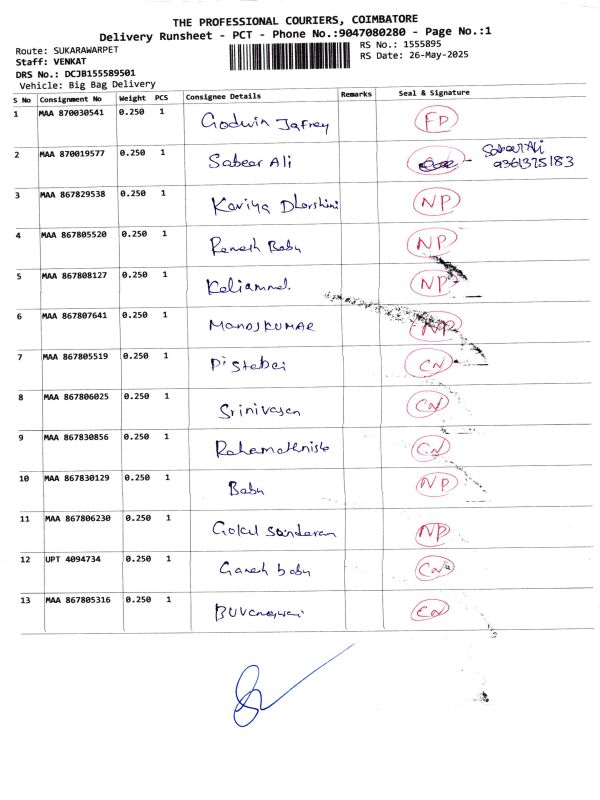 THE PROFESSIONAL COURIERS, COIMBATORE
Delivery Runsheet - PCT - Phone No.:9047080280 - Page No.:1
Route: SUKARAWARPET RS No.: 1555895
Staff: VENKAT RS Date: 26-May-2025
DRS No.: DCJB155589501
Vehicle: Big Bag Delivery
S No Consignment No Weight PCS Consignee Details Remarks Seal & Signature
1 MAA 870030541 0.250 1 Godwin Jafrey FD
2 MAA 870019577 0.250 1 Sabeer Ali Sabeer Ali 9361375183
3 MAA 867829538 0.250 1 Kaviya Dharshini NP
4 MAA 867805520 0.250 1 Ramesh Babu NP
5 MAA 867808127 0.250 1 Kaliammal NP
6 MAA 867807641 0.250 1 MANOJKUMAR NP
7 MAA 867805519 0.250 1 CN
8 MAA 867806025 0.250 1 Srinivasan CN
9 MAA 867830856 0.250 1 CN
10 MAA 867830129 0.250 1 Babu NP
11 MAA 867806230 0.250 1 Gokul NP
12 UPT 4094734 0.250 1 Ganesh babu CN
13 MAA 867805316 0.250 1 CN